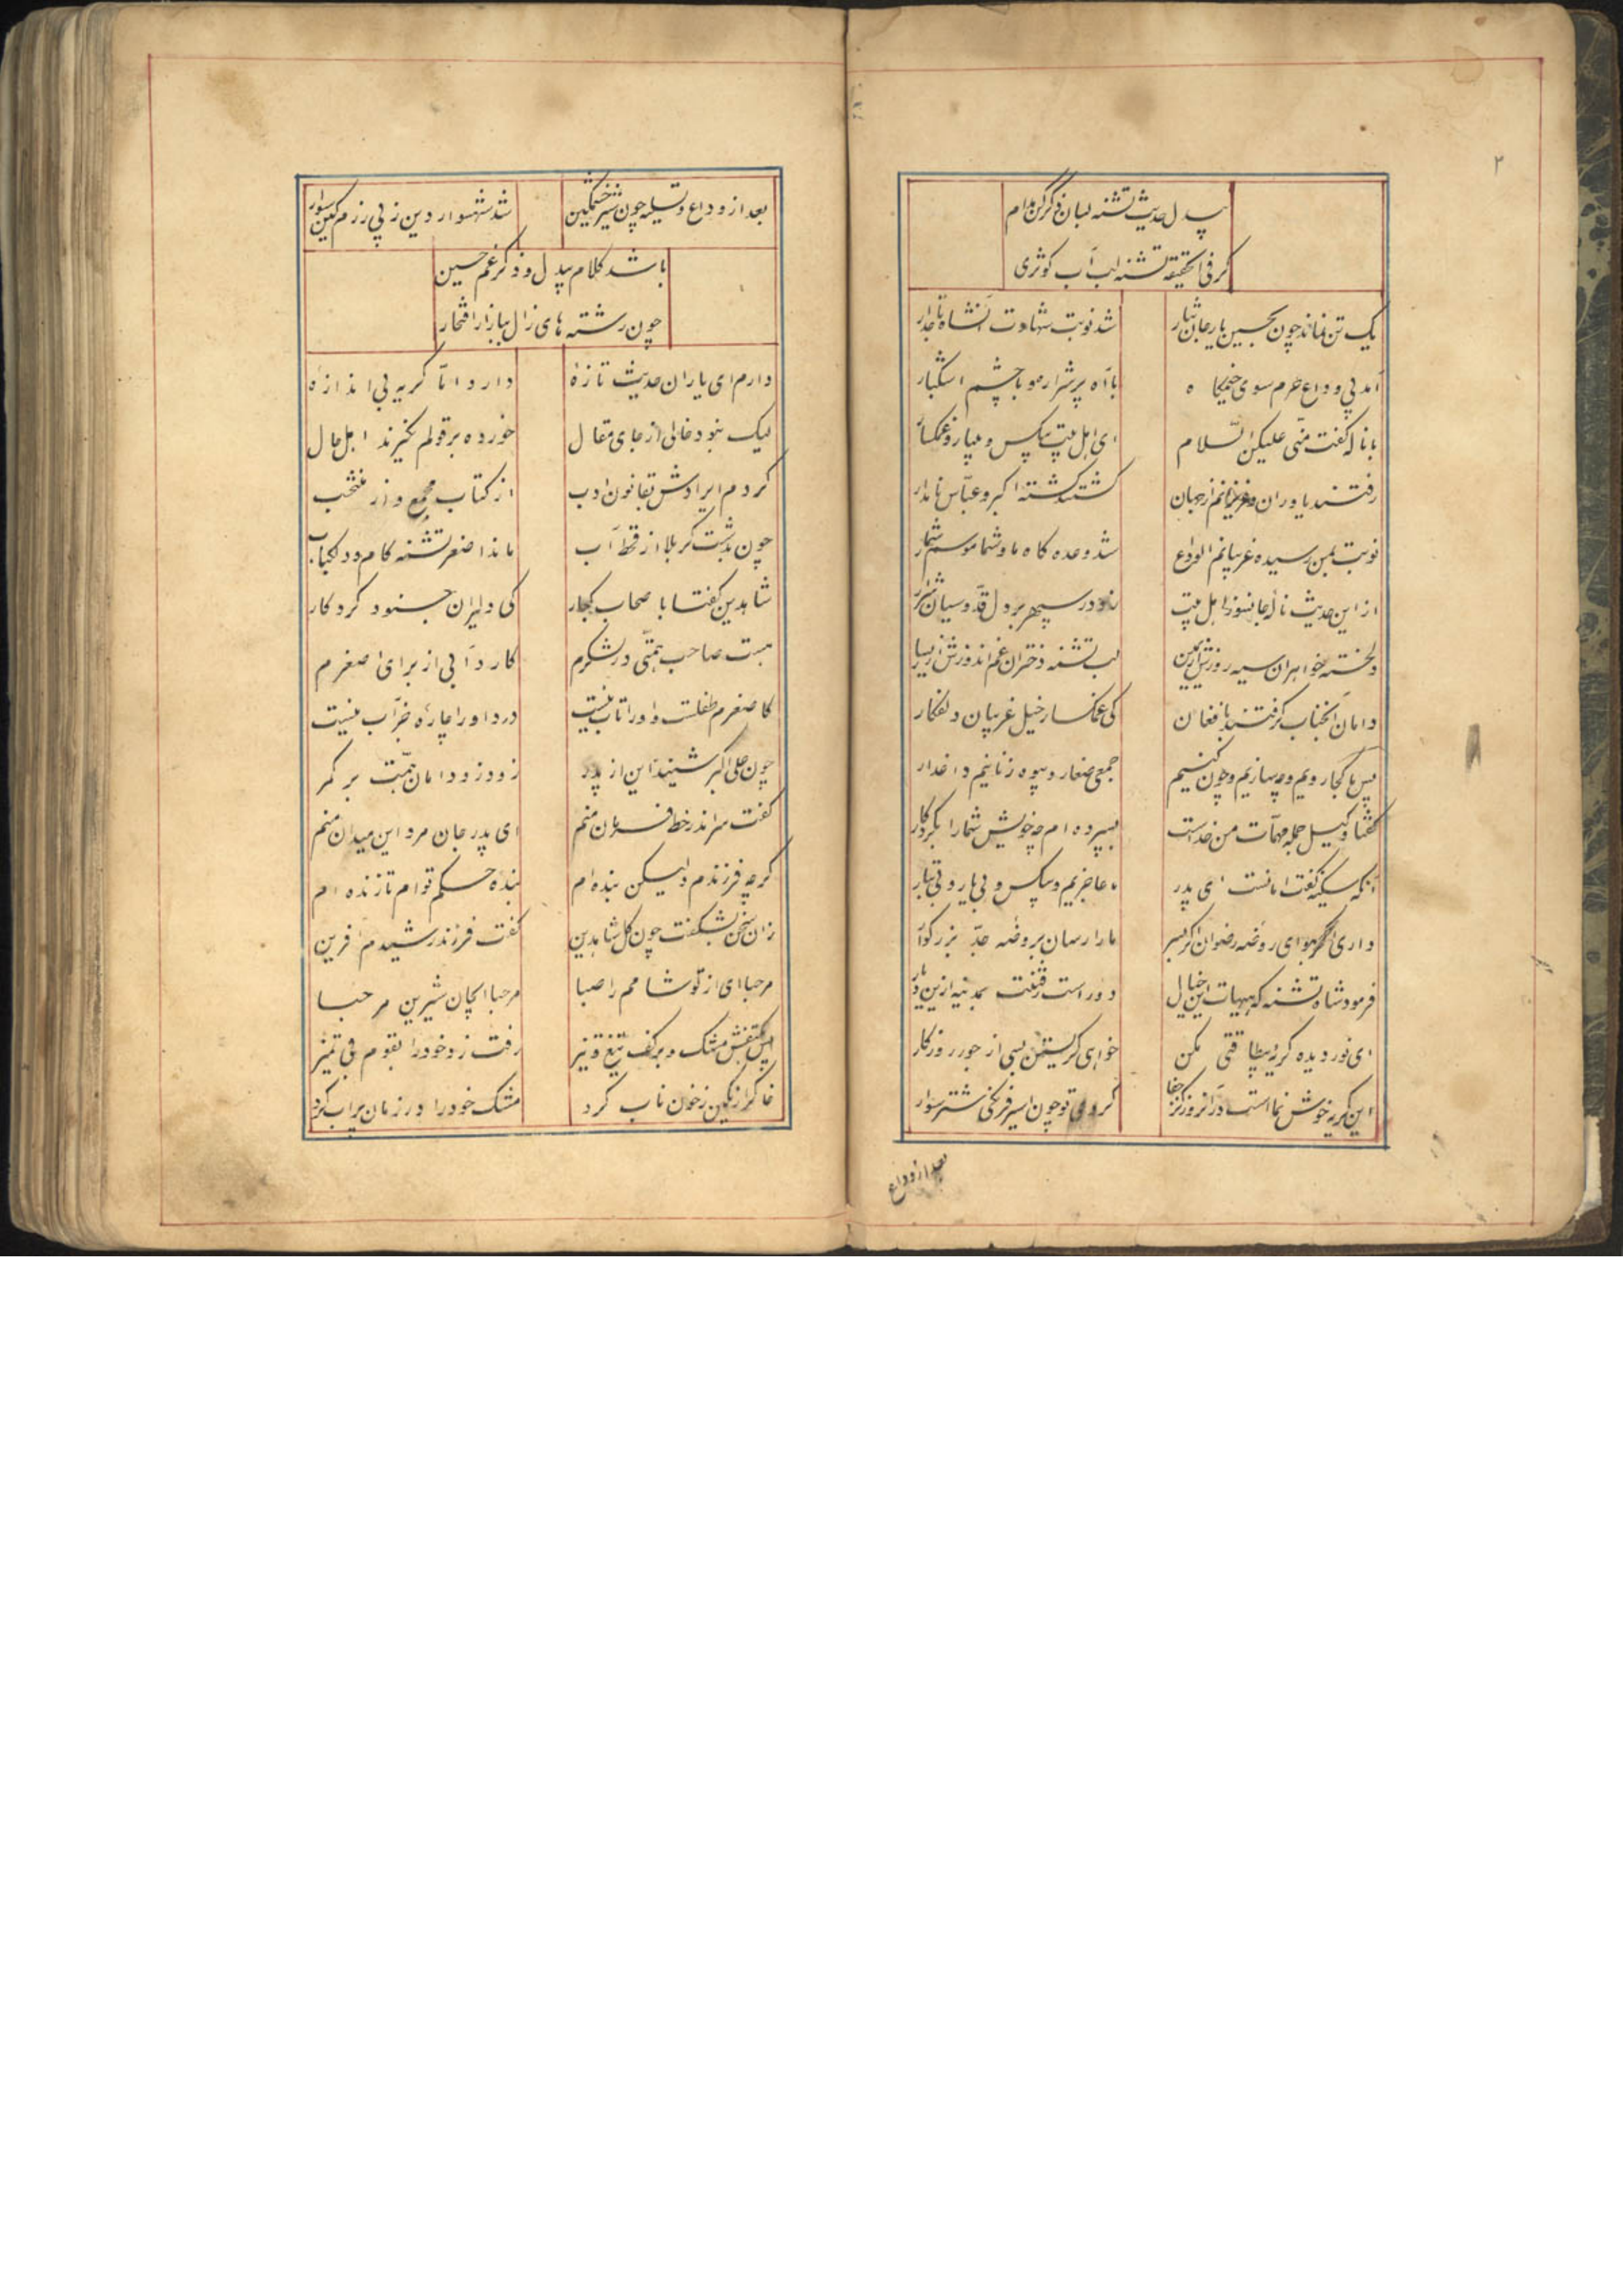 ۲
بیدل حدیث تشنه لبان ذکر کن مدام
گر فی الحقیقه تشنه لب آب کوثری
یک تن نماند چون بحسین یار جان نثار
شد نوبت شهادت آنشاه تاجدار
آمد پی وداع حرم سوی خیمگاه
با آه پر شرار و با چشم اشکبار
با ناله گفت منّی علیکنّ السّلام
ای اهل بیت بیکس و بییار و غمگسار
رفتند یاوران و عزیزانم از جهان
گشتند کشته اکبر و عبّاس نامدار
نوبت بمن رسیده غریبانم الوداع
شد وعده گاه ما و شما موسم شمار
از این حدیث ناله جانسوز اهل بیت
زد در سپهر بر دل قدّوسیان شرار
دلخسته خواهران سیه روزش از یمین
لب تشنه دختران غم اندوزش از یسار
دامان آنجناب گرفتند با فغان
کی غمگسار خیل غریبان دلفکار
پس ما کجا رویم و چه سازیم و چون کنیم
جمعی صغار و بیوه زنانیم داغدار
گفتا وکیل جمله مهمّات من خداست
بسپرده ام چه خویش شما را بکردگار
آنگه سکینه گفت امانست ای پدر
ما عاجزیم و بیکس و بی یار و بی تبار
داری اگر هوای روضه رضوان اگر بسر
ما را رسان بروضه جدّ بزرگوار
فرمود شاه تشنه که هیهات این خیال
دور است رفتنت بمدینه ازین دیار
ای نور دیده گریه بیطاقتی مکن
خواهی گریستن بسی از جور روزگار
این گریه خوش نما است در آنروز کز جفا
گردی تو چون اسیر فرنگی شتر سوار
بعد از وداع
بعد از وداع و تسلیه چون شیر خشمگین
شد شهسوار دین ز پی رزم کین سوار
باشد کلام بیدل و ذکر غم حسین
چون رشته های زال ببازار افتخار
دارم ای یاران حدیث تازهٔ
دارد امّا گریه بی اندازهٔ
لیک نبود خالی از جای مقال
خورده بر قولم نگیرند اهل حال
کردم ایرادش بقانون ادب
از کتاب مجمع و از منتخب
چون بدشت کربلا از قحط آب
ماند اصغر تشنه کام و دل کباب
شاهدین گفتا با صحاب کبار
کی دلیران جنود کردگار
هست صاحب همّتی در لشگرم
کارد آبی از برای اصغرم
کاصغرم طفلست و او را تاب نیست
درد او را چارهٔ جز آب نیست
چون علی اکبر شنید این از پدر
زود زد دامان همّت بر کمر
گفت سر اندر خط فرمان منم
ای پدر جان مرد این میدان منم
گرچه فرزندم ولیکن بنده ام
بنده حکم توام تا زنده ام
زان سخن بشکفت چون گل شاهدین
گفت فرزند رشیدم آفرین
مرحبا ای از تو شامم را صبا
مرحبا ایجان شیرین مرحبا
پس بکتفش مشک و بر کف تیغ تیز
رفت زد خود را بقوم بی تمیز
خاک را رنگین ز خون ناب کرد
مشک خود را در زمان پر آب کرد